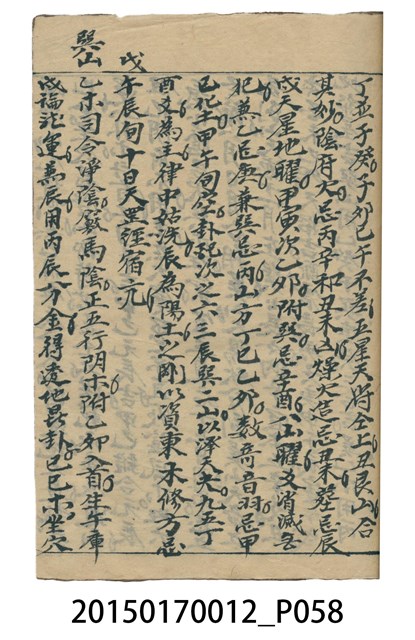 丁並子癸子卯巳午不差五星天將仝上丑艮山合
其妙陰府大忌丙辛和丑未凶燥火造忌丑未塟忌辰
戍天星地曜甲寅次乙卯附巽忌辛酉八山曜文消滅忌
犯兼乙忌庚兼巽忌丙山方丁巳乙卯数音羽忌甲
己化土甲午旬空卦配次之六三辰巽二山以澤天夬九五丁
酉爻為主律中姑洗辰為陽土之剛以資東木修方忌
午辰旬十日天罡經宿亢
戊
乙木司令淨陰竅馬陰正五行阴木附乙卯入首生午庫
巽山
戍論洪運兼辰用丙辰八分金得遠地艮卦己巳木坐穴
20150170012_P058